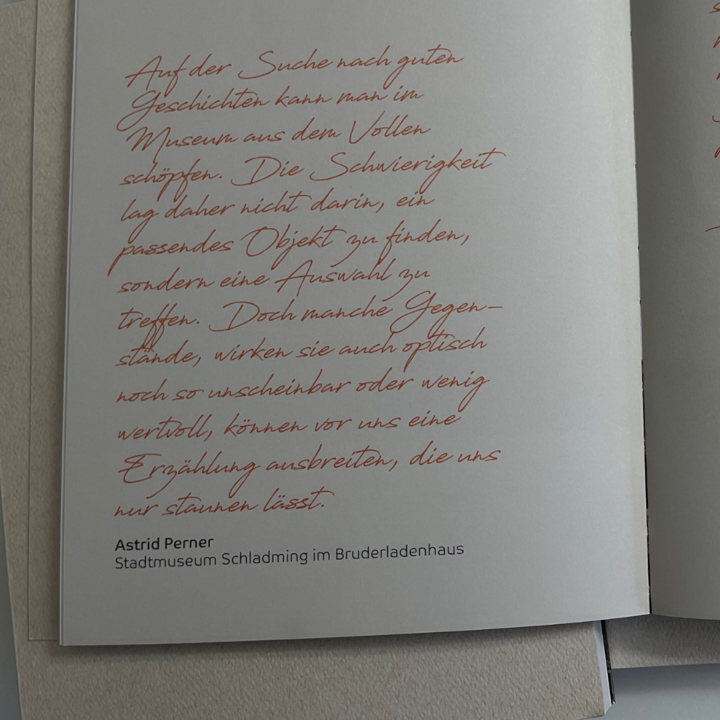 Auf der Suche nach guten
Geschichten kann man im
Museum aus dem Vollen
schöpfen. Die Schwierigkeit
lag daher nicht darin, ein
passendes Objekt zu finden,
sondern eine Auswahl zu
treffen. Doch manche Gegen-
stände, wirken sie auch optisch
noch so unscheinbar oder wenig
wertvoll, können vor uns eine
Erzählung ausbreiten, die uns
nur staunen lässt.
Astrid Perner
Stadtmuseum Schladming im Bruderladenhaus